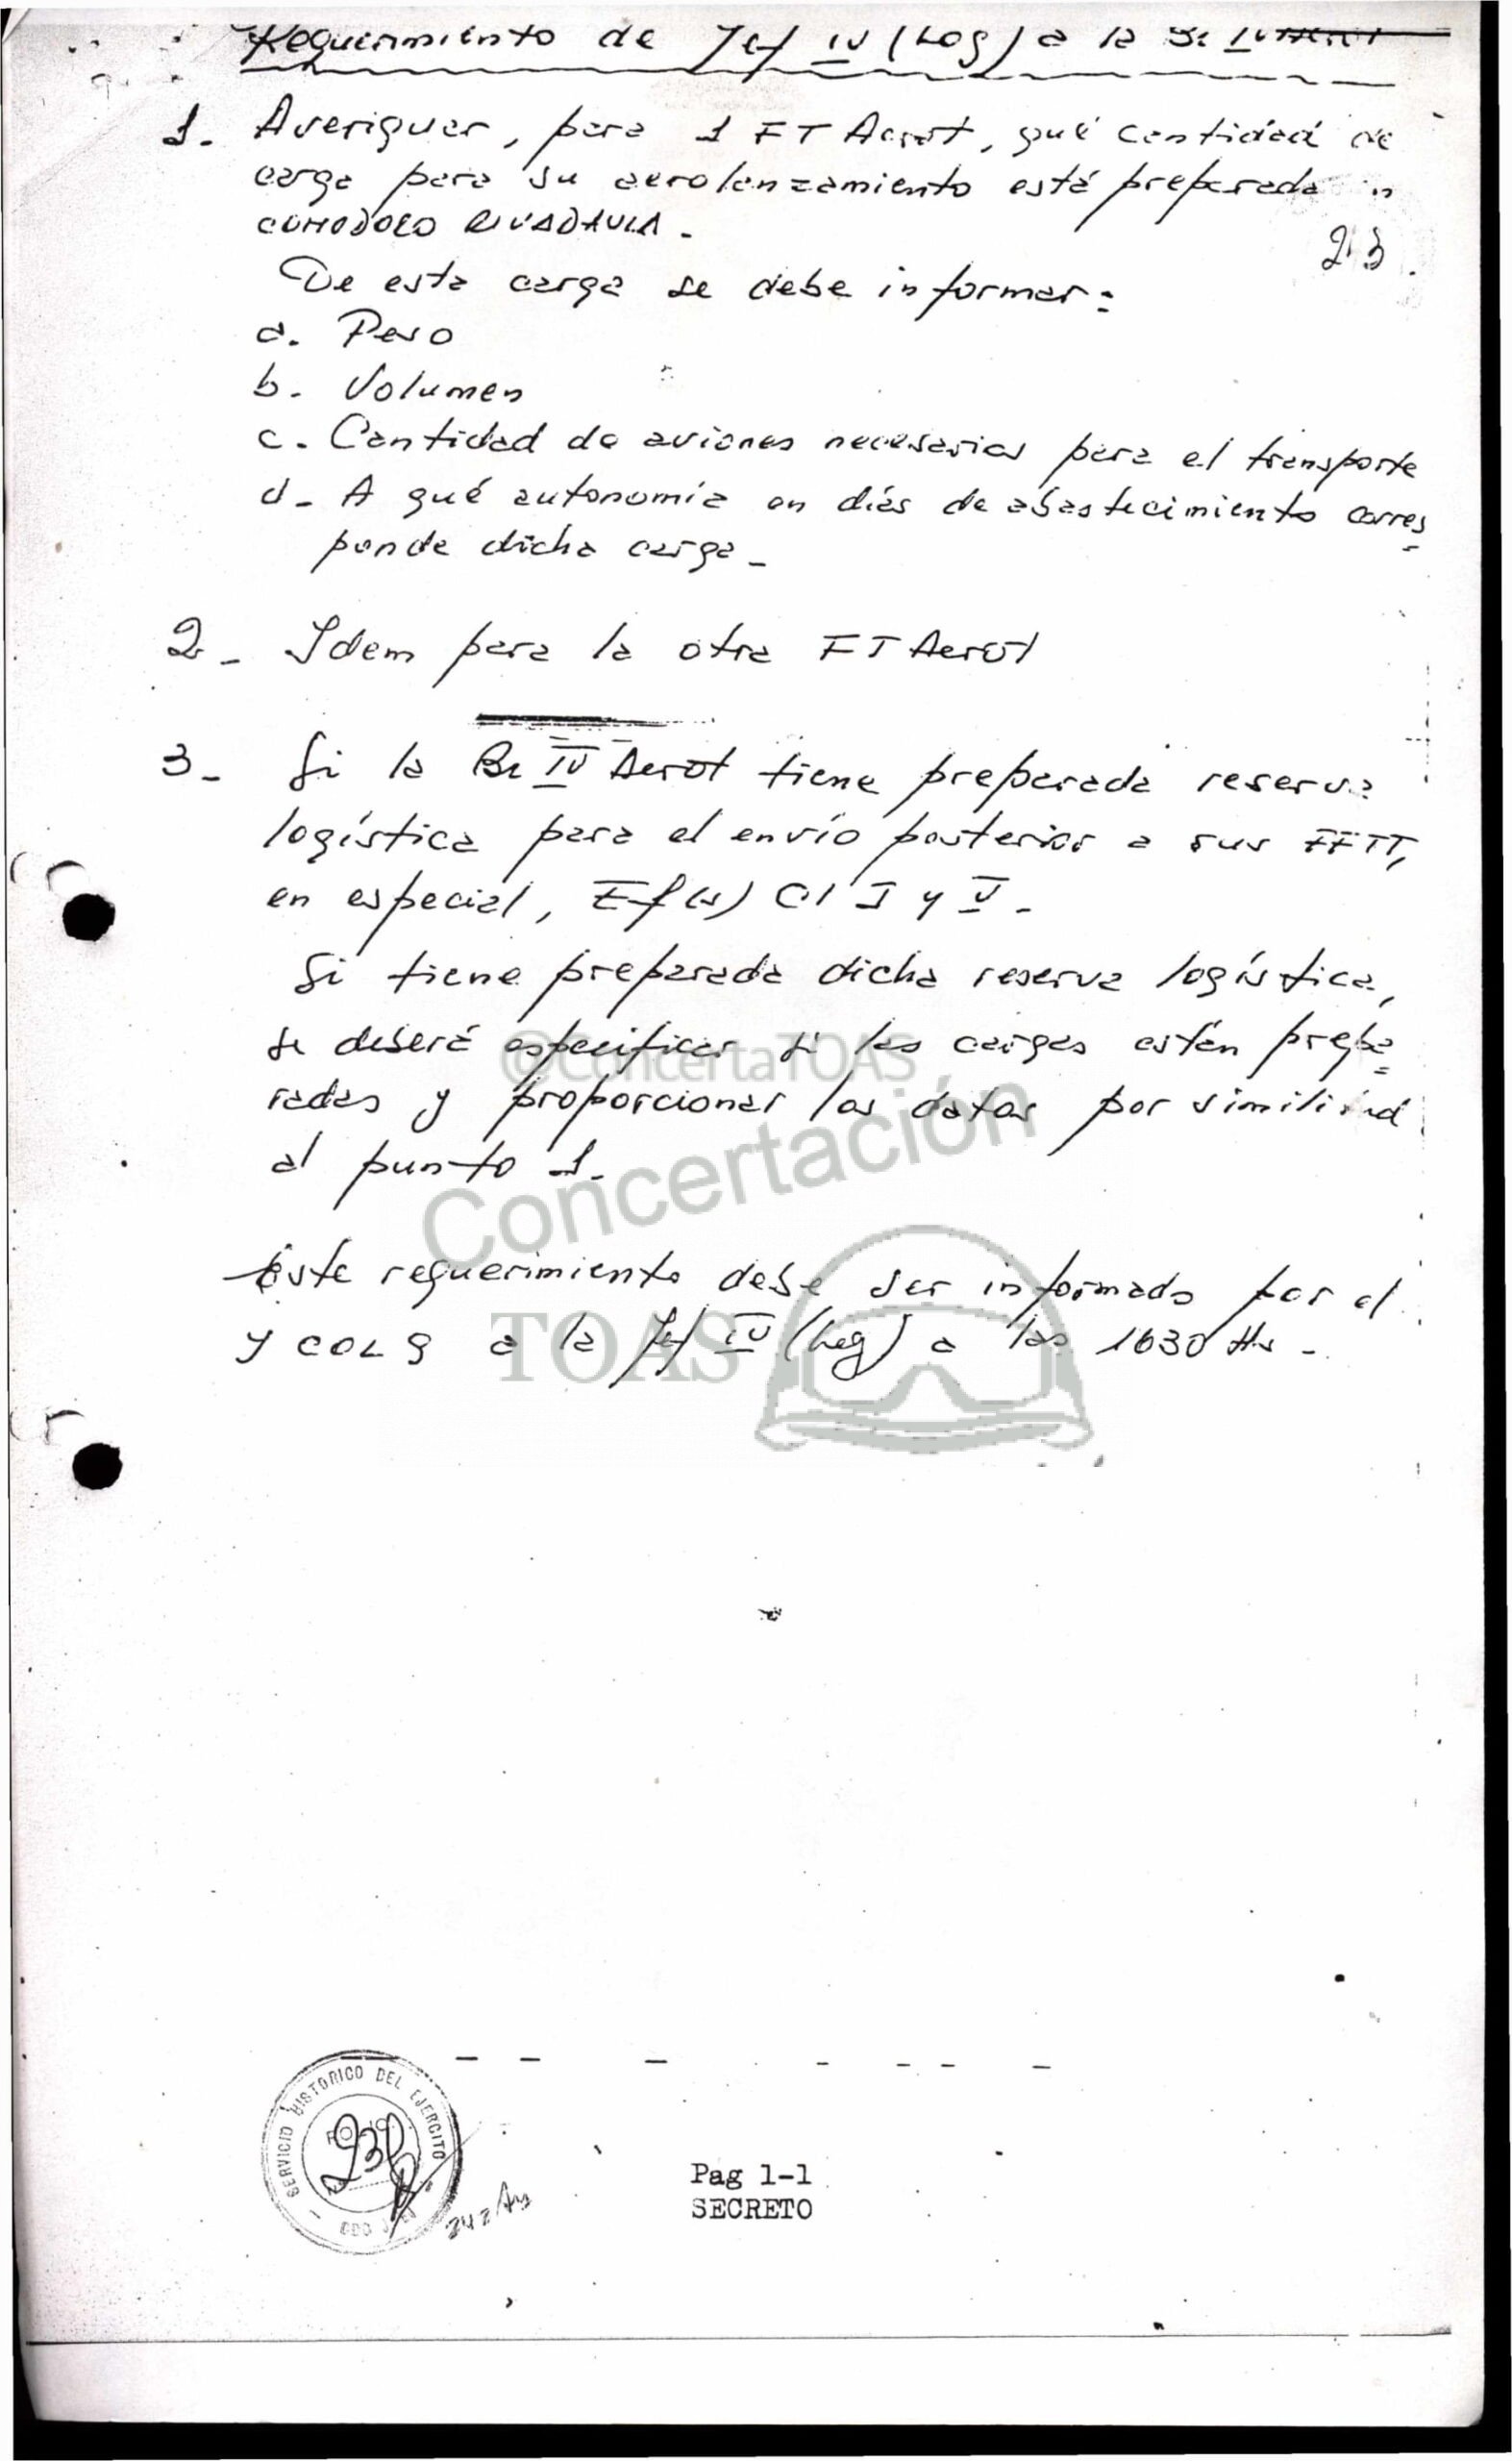 Requerimiento de Jef IV (Log) a la Br IV Aerot
1. Averiguar, para 1 FT Aerot, qué cantidad de
carga para su aerolanzamiento está preparada en
COMODORO RIVADAVIA.
23.
De esta carga se debe informar:
a. Peso
b. Volumen
c. Cantidad de aviones necesarios para el transporte
d. A qué autonomía en días de abastecimiento corres
ponde dicha carga.
2. Idem para la otra FT Aerot
3. Si la Br IV Aerot tiene preparada reserva
logística para el envío posterior a sus FFTT,
en especial, Ef(s) Cl I y V.
Si tiene preparada dicha reserva logística,
se deberá especificar si las cargas están prepa
radas y proporcionar los datos por similitud
al punto 1.
Este requerimiento debe ser informado por el
a la Jef IV (Log) a las 1630 Hs.
@ConcertaTOAS
Concertación
TOAS
SERVICIO HISTORICO DEL EJERCITO
FOLIO
Pag 1-1
SECRETO